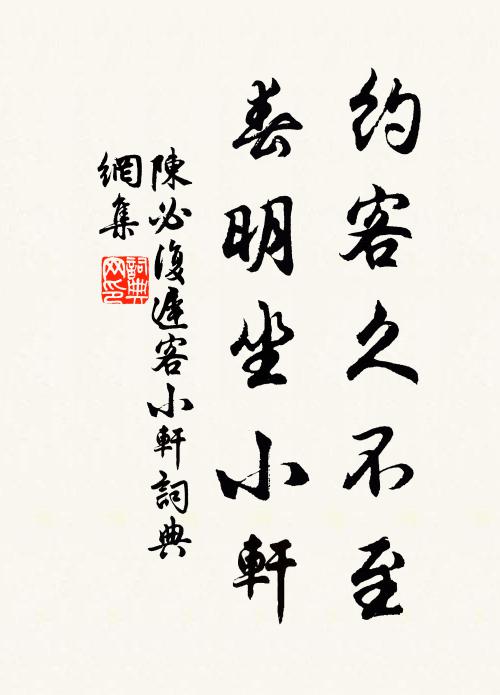 約客久不至
春明坐小軒
陳必復遲客小軒詞典
網集
詞典
网印